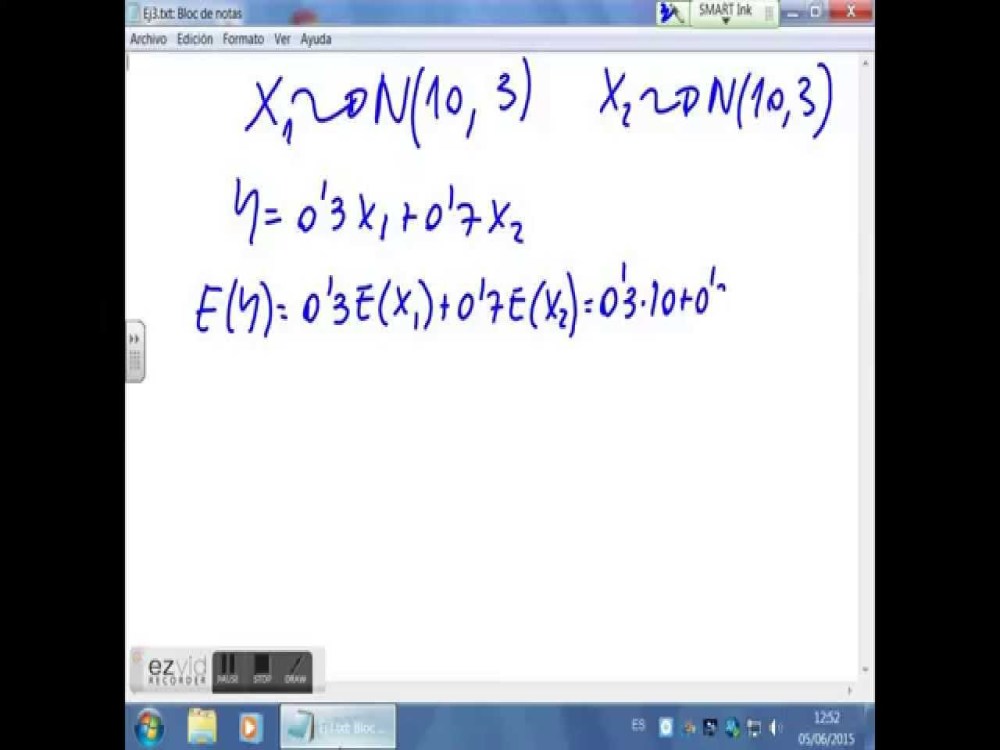 Ej3.txt: Bloc de notas
SMART Ink
Archivo Edición Formato Ver Ayuda
X₁ ~→ N(10, 3) X₂ ~→ N(10,3)
Y = 0'3 X₁ + 0'7 X₂
E(Y) = 0'3 E(X₁) + 0'7 E(X₂) = 0'3·10 + 0'
ezvid
RECORDER
PAUSE STOP DRAW
Ej3.txt: Bloc ...
ES
12:52
05/06/2015